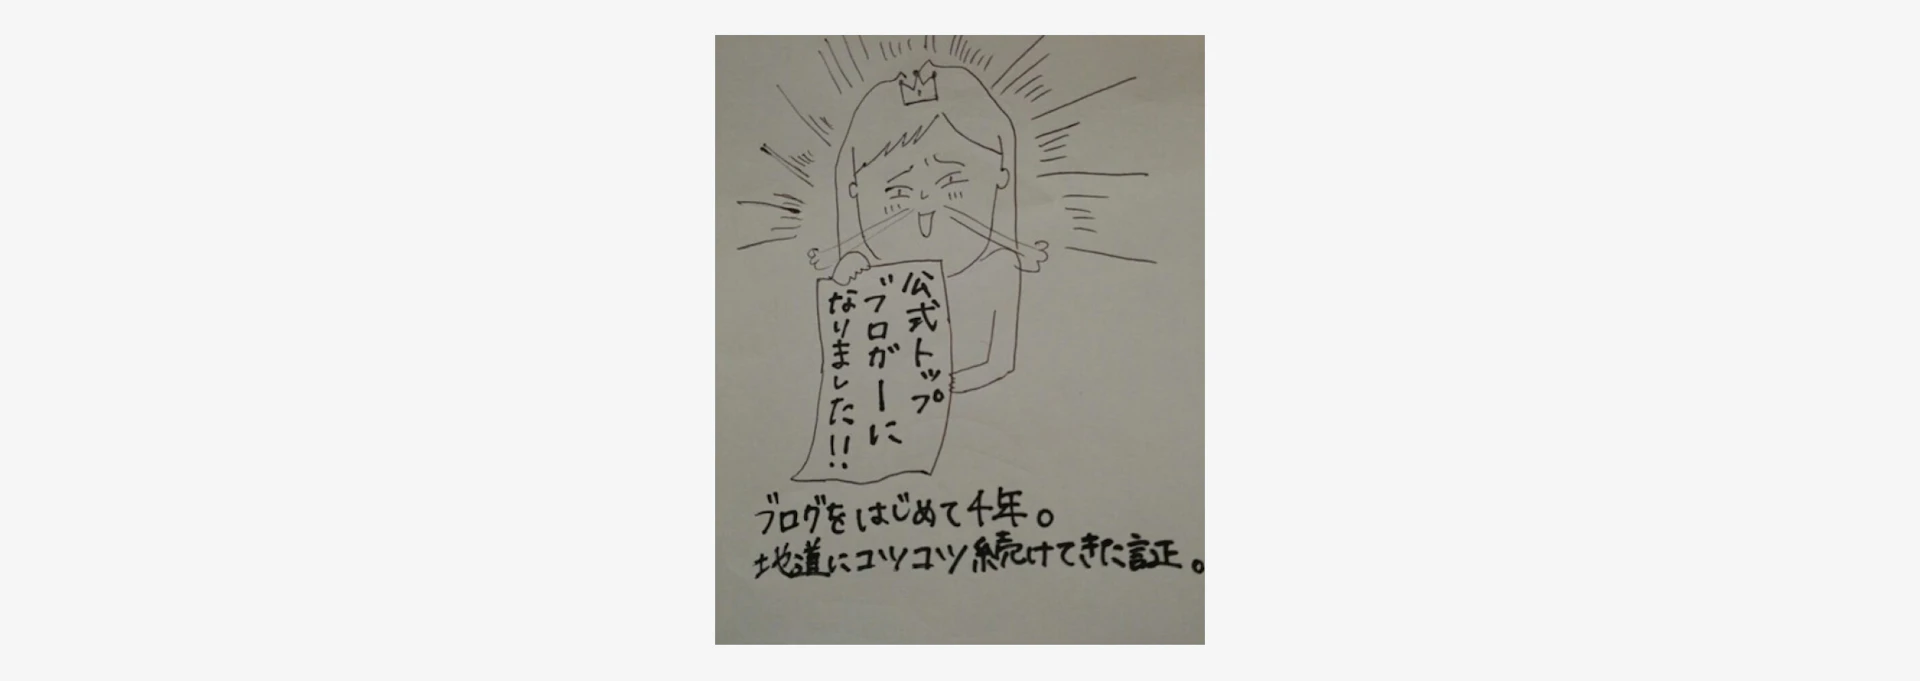 公式トップ
ブロガーに
なりました!!
ブログをはじめて千年。
地道にコツコツ続けてきた証。